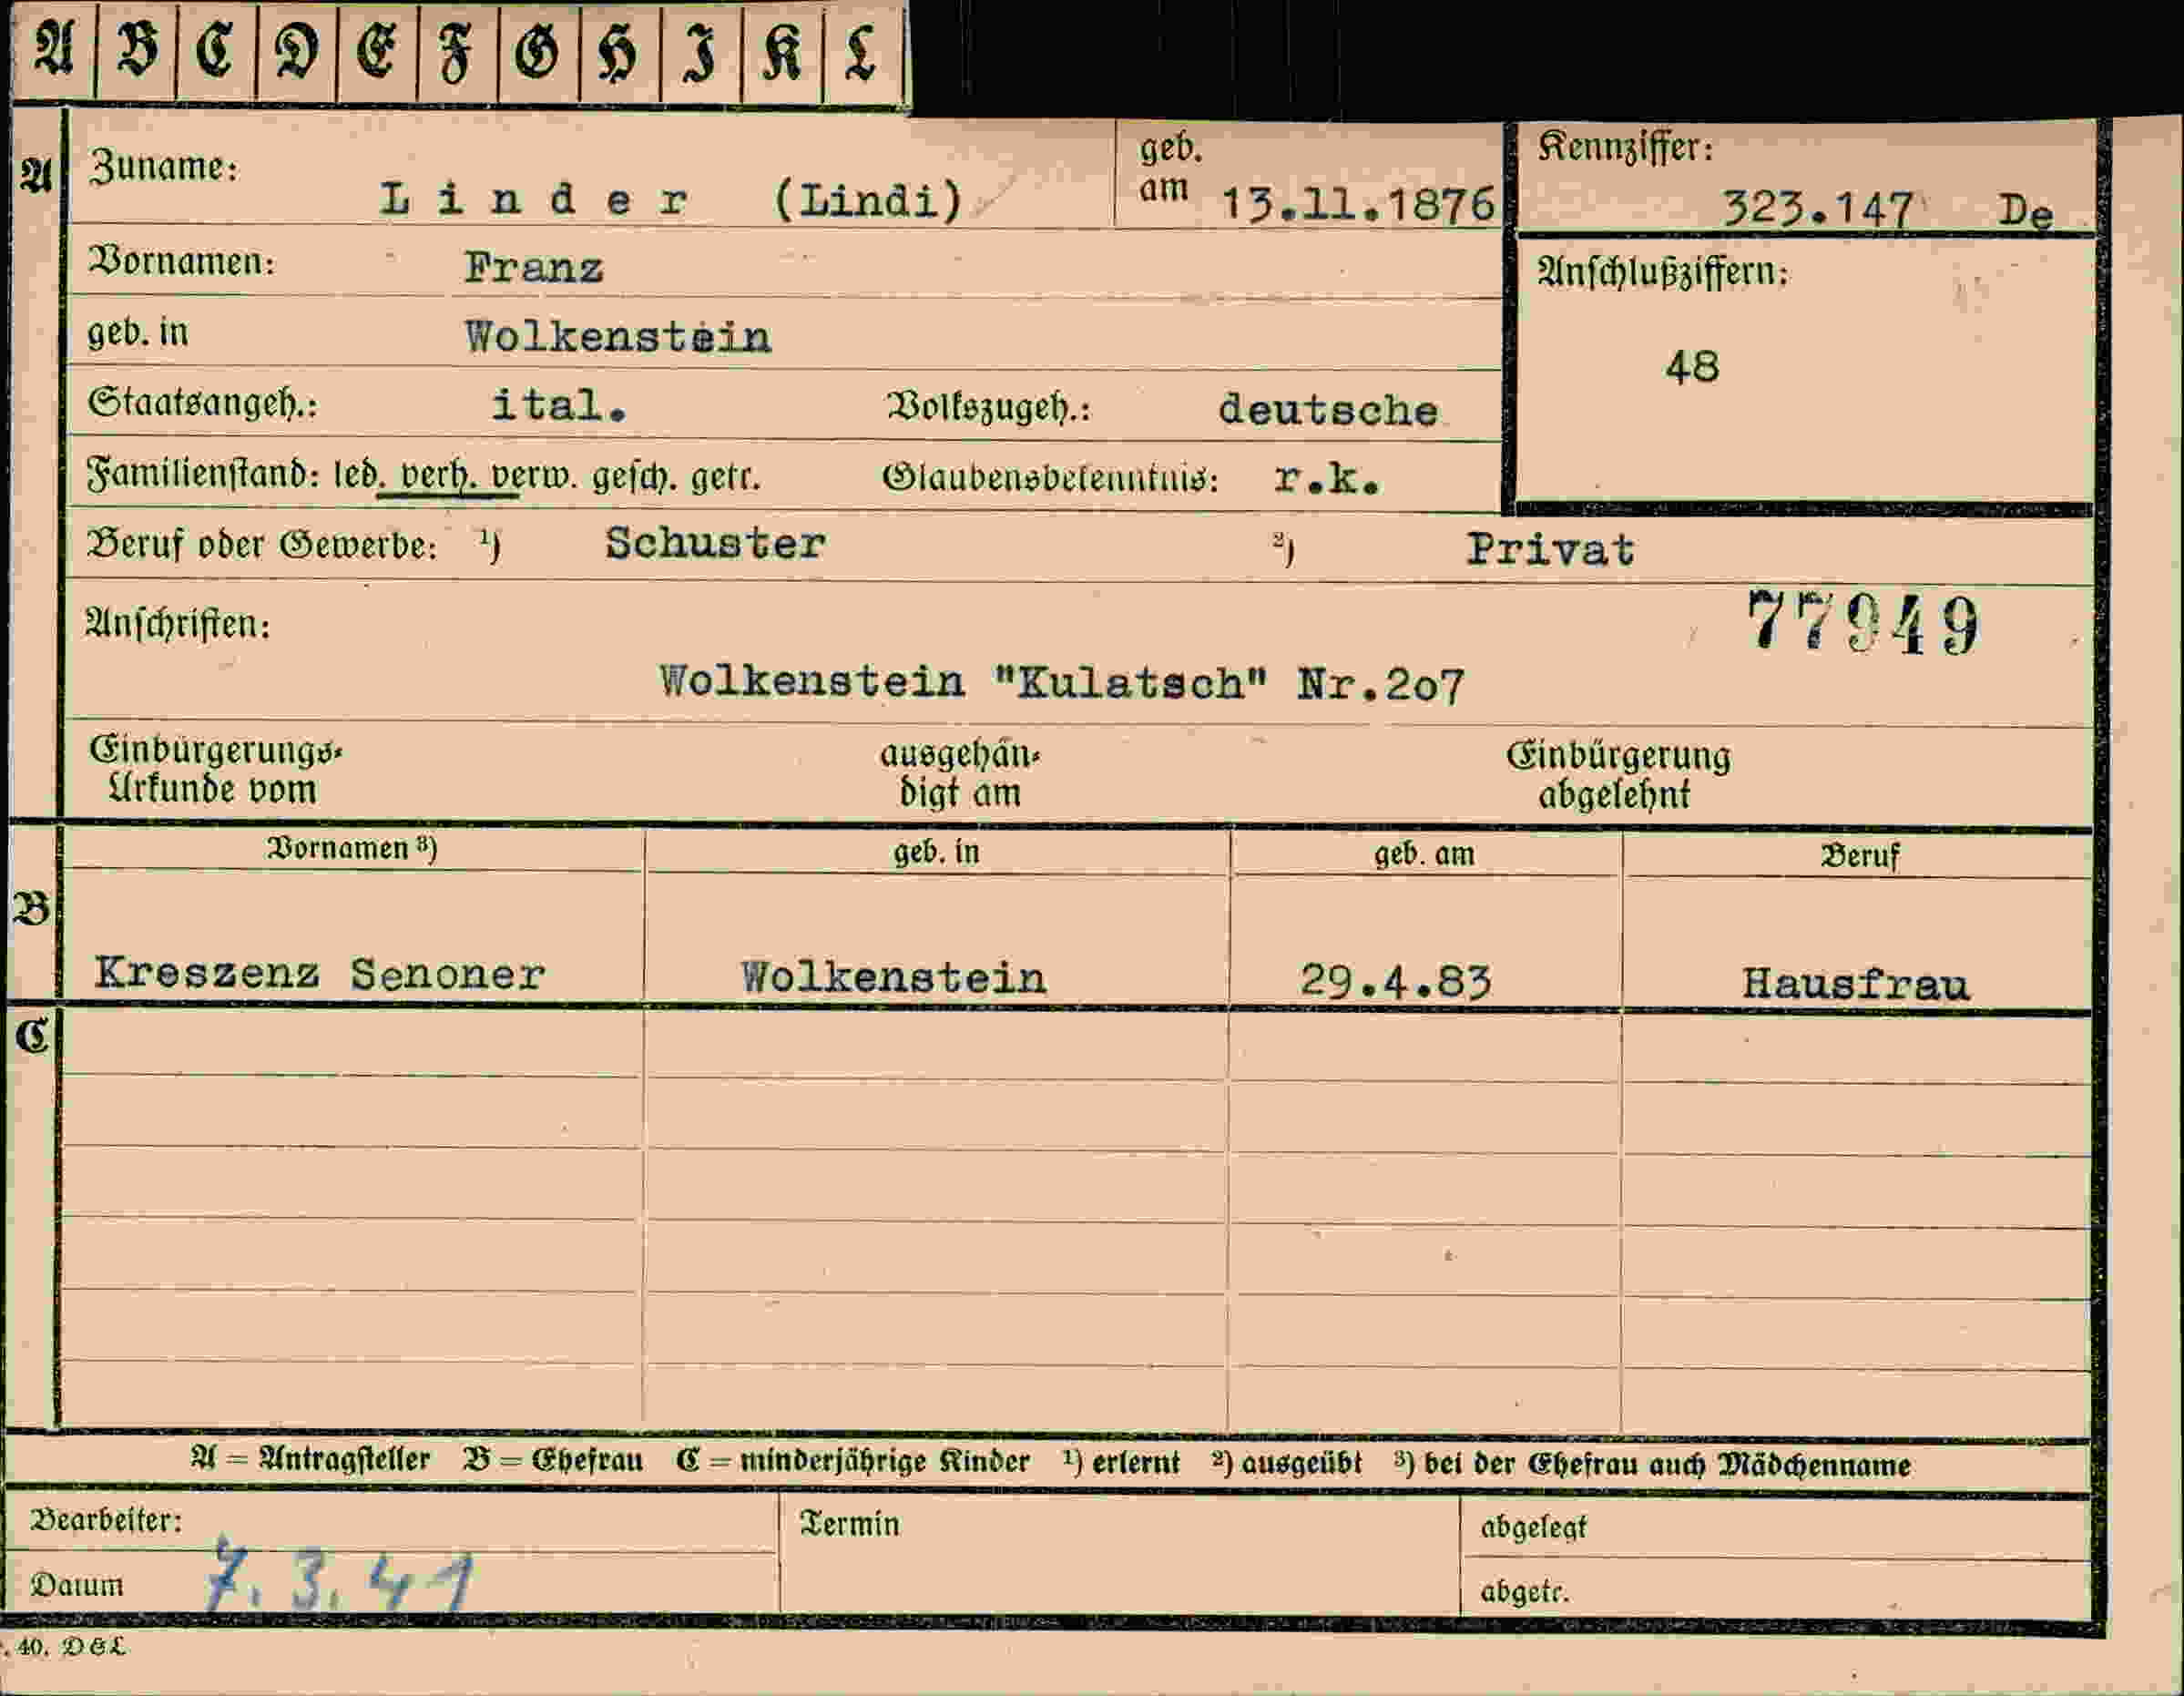 A B C D E F G H I K L
A
Zuname: Linder (Lindi) geb. am 13.11.1876
Kennziffer: 323.147 De
Vornamen: Franz
Anschlußziffern: 48
geb. in Wolkenstein
Staatsangeh.: ital. Volkszugeh.: deutsche
Familienstand: led. verh. verw. gesch. getr. Glaubensbekenntnis: r.k.
Beruf oder Gewerbe: ¹) Schuster ²) Privat
Anschriften: 77949
Wolkenstein "Kulatsch" Nr.2o7
Einbürgerungs-
Urkunde vom
ausgehän-
digt am
Einbürgerung
abgelehnt
B
Vornamen ³) geb. in geb. am Beruf
Kreszenz Senoner Wolkenstein 29.4.83 Hausfrau
C
A = Antragsteller B = Ehefrau C = minderjährige Kinder ¹) erlernt ²) ausgeübt ³) bei der Ehefrau auch Mädchenname
Bearbeiter: Termin abgelegt
Datum 7.3.41 abgetr.
. 40. DGL